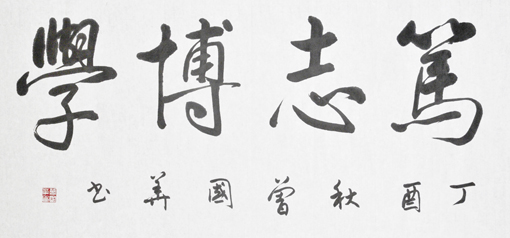 篤志博學
丁酉秋曾國華书